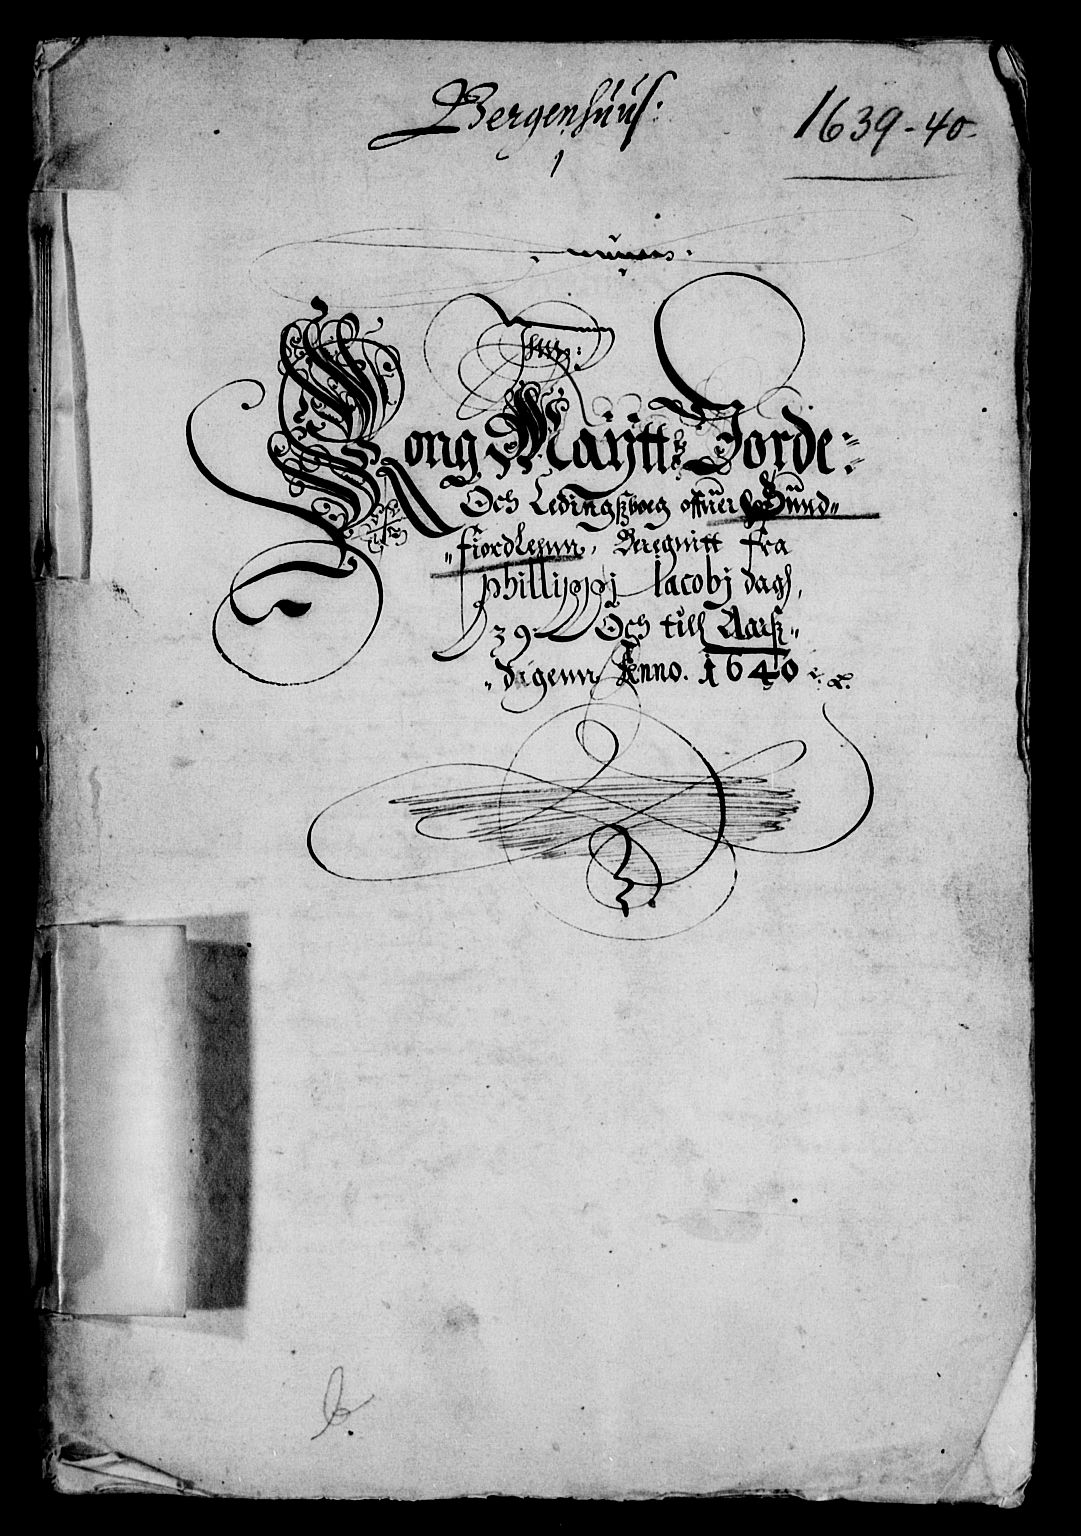 Bergenhuus:
1639-40.
Kong Maÿtts Jorde-
Och Ledingsboeg offuer Sund-
fiord Lenn, Beregnitt fra
Phillippj Jacobj dag
39 Och till Aars-
dagenn Anno. 1640